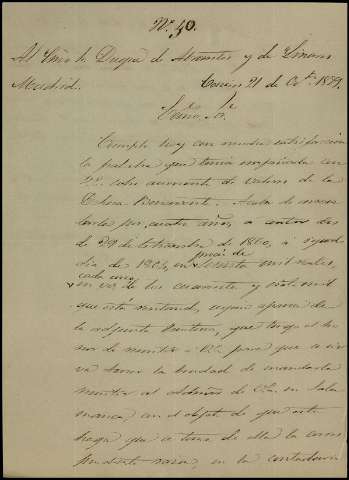 Nº 40.
Al Exmo Sr. Duque de Abrantes y de Linares
Madrid.
Coria 21 de Oct.e 1859.
Exmo. Sr.
Cumplo hoy con mucha satisfacción
la palabra que tenía empeñada con
V.E. sobre aumento de valores de la
Dehesa Benavente. Acabo de
por cuatro años, a contar des
de 29 de Setiembre de 1860, a igual
dia de 1864, en precio de sesenta mil reales,
cada uno,
en vez de los cuarenta y siete mil
que está rentando, segun aparece de
la adjunta Escritura, que tengo el ho
nor de remitir a V.E. para que se sir
va tener la bondad de mandarla
remitir al de V.E. en Sala
manca con el objeto de que este
haga que se tome de ella la corres
pondiente razon, en la contaduria